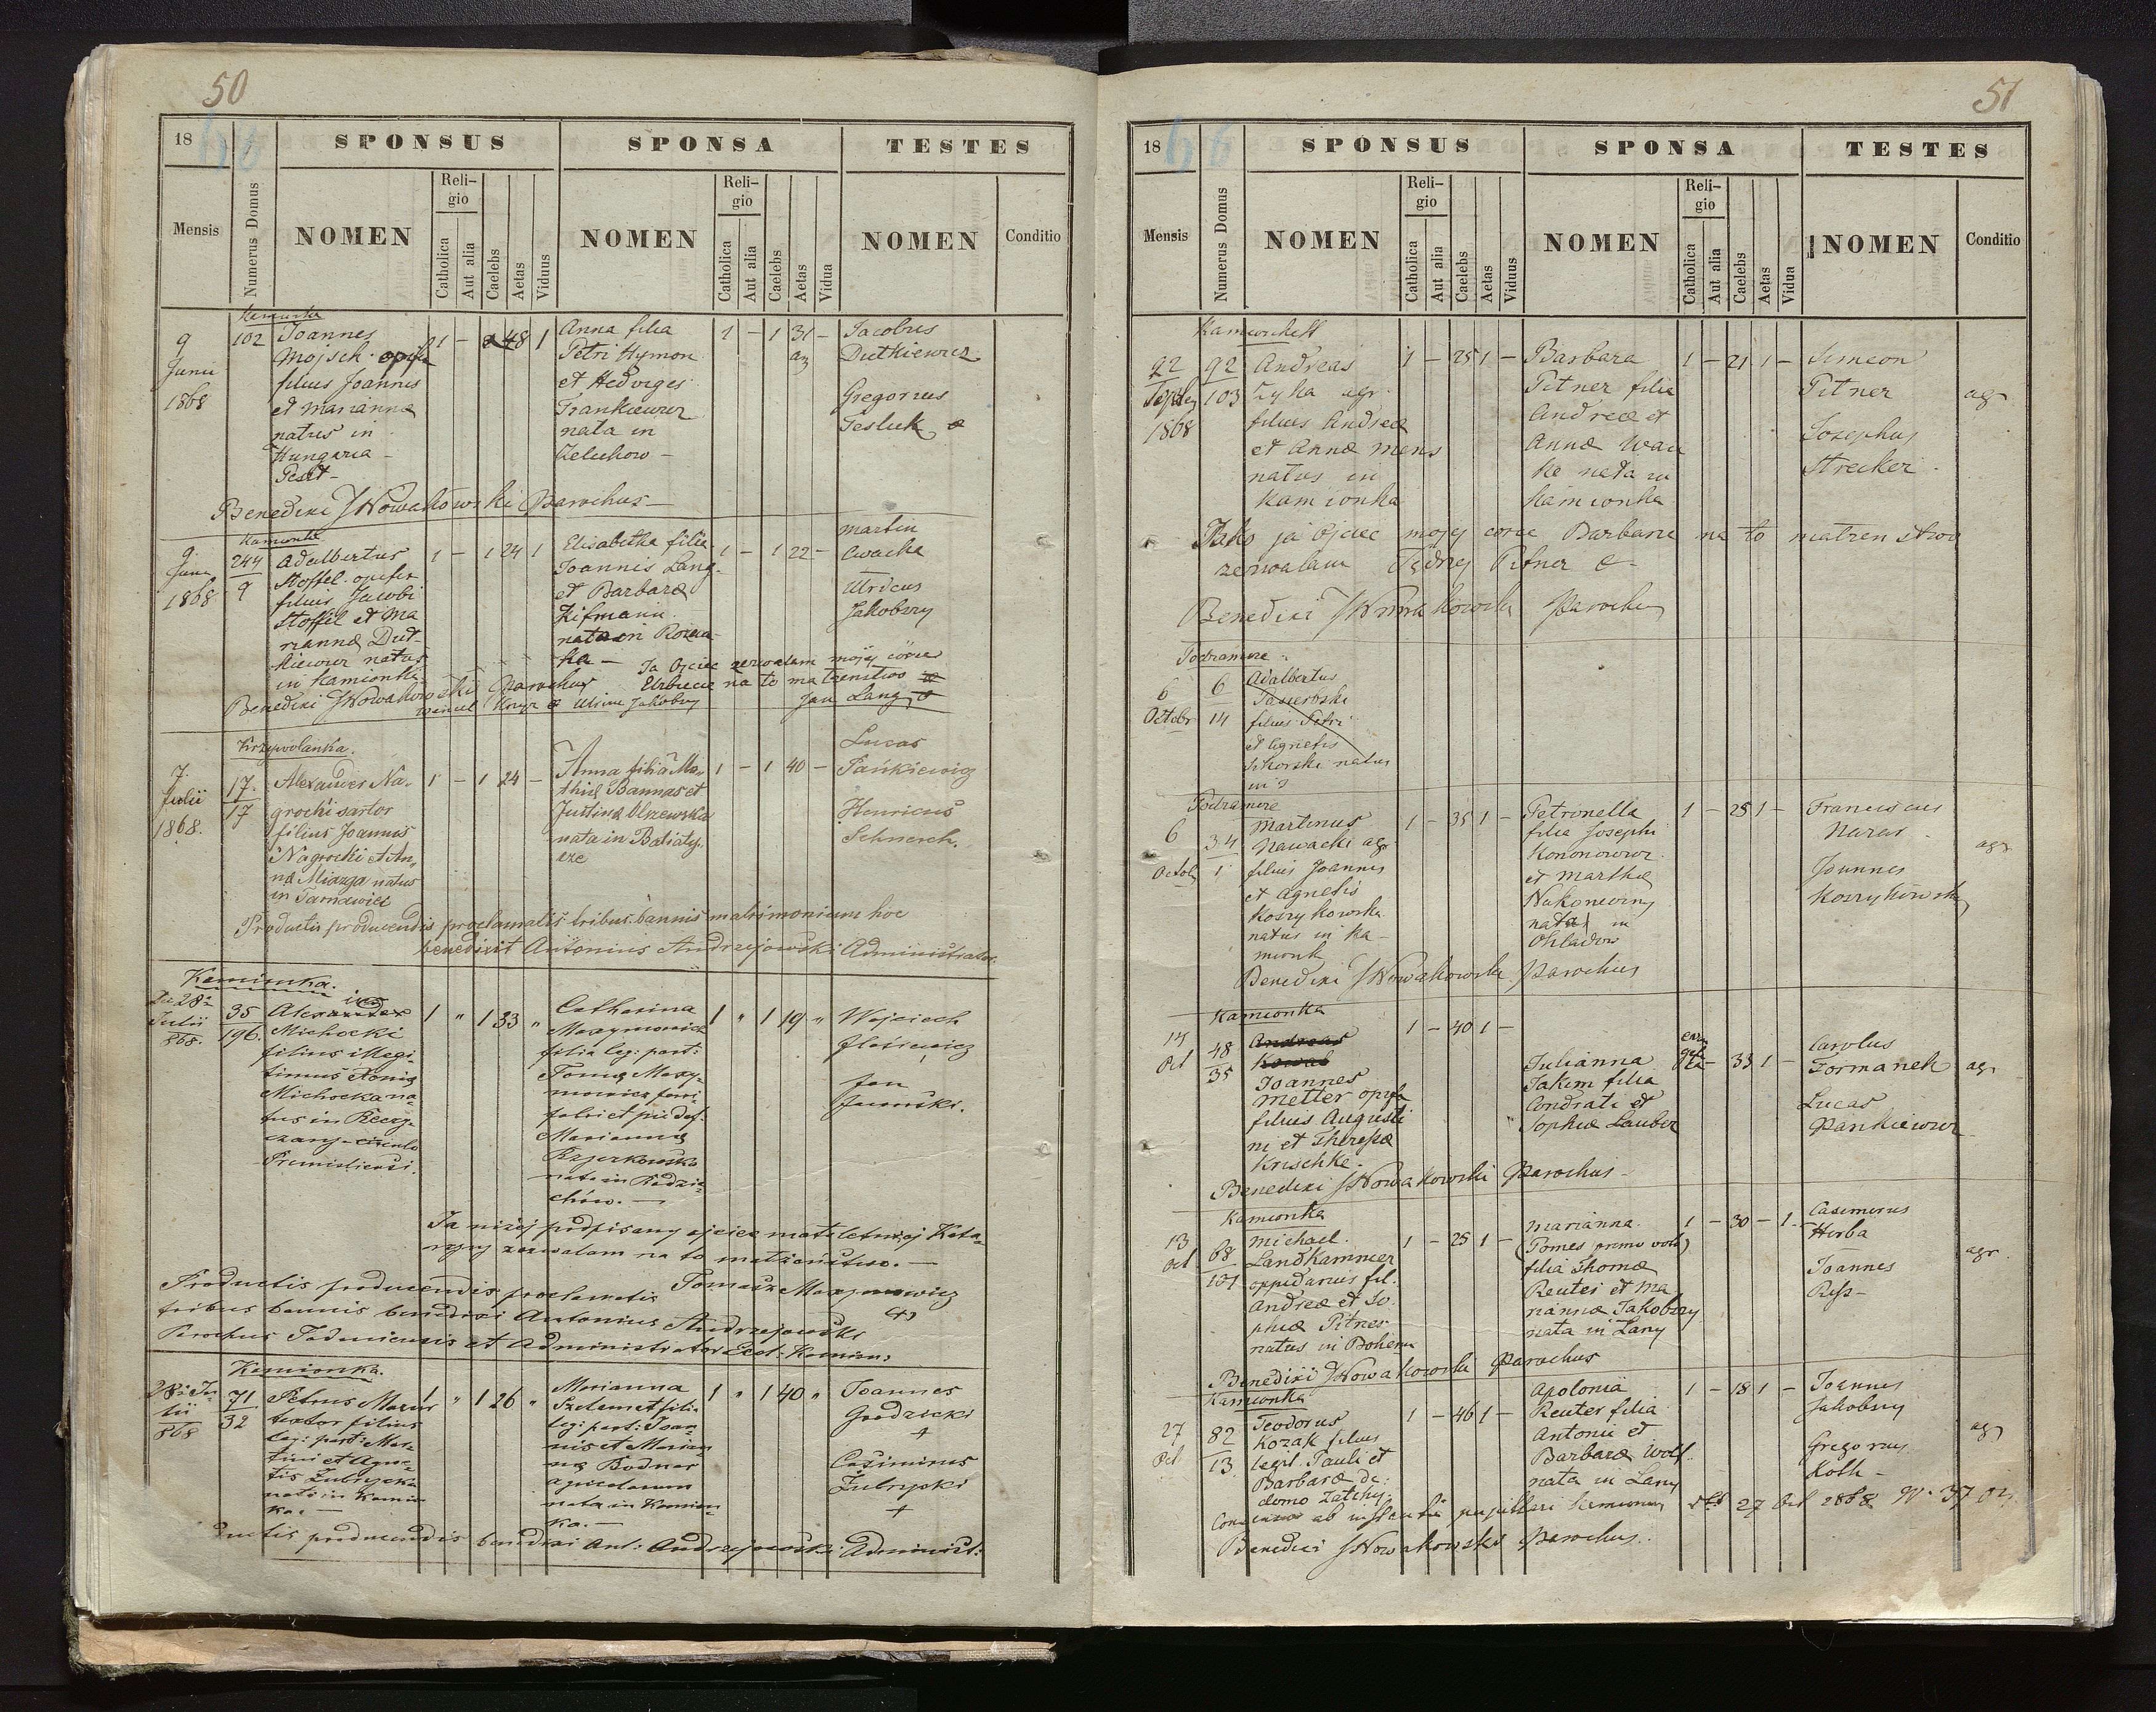 50
18
SPONSUS SPONSA TESTES
Mensis Numerus Domus NOMEN Religio Catholica Aut alia Caelebs Aetas Viduus NOMEN Religio Catholica Aut alia Caelebs Aetas Vidua NOMEN Conditio
Kamionka
9 Junii 1868
102
Joannes
Mojsch opifex
filius Joannis
et Marianna
natus in
Hungaria –
Pest –
1 – 48 1
Anna filia
Petri Hymon
et Hedviges
Frankiewicz
nata in
Zeluchow –
1 – 1 31 –
Jacobus
Dutkiewicz
Gregorius
Tesluk
Benedixi J Nowakowski Parochus –
Kamionka
9 Junii 1868
244
9
Adalbertus
Stoffel opifex
filius Jacobi
Stoffel et Ma
rianna Dut-
kiewicz natus
in Kamionka
1 – 1 24 1
Elisabetha filia
Joannis Lang
et Barbara
Kifmann
nata in
ka –
1 – 1 22 –
Martin
Cwacka
Jakobszy
Ja Ojciec zezwalam mojej córce
Elzbiecie na to matzenstwo
Jan Lang
Benedixi J Nowakowski Parochus
Krzywolanka.
7. Julii 1868.
17.
17
Alexander Na-
grocki sartor
filius Joannis
Nagrocki et An-
na Miazga natus
in Tarnawice
1 – 1 24 –
Anna filia Ma-
thia Bannas et
Justina Olszewska
nata in Batiaty-
cze
1 – 1 40 –
Lucas
Pańkiewicz
Henricus
Schnerch.
Productis producendis proclamatis tribus bannis matrimonium hoc
benedixit Antonius Andrzejowski Administrator.
Kamionka.
28a Julii 868.
35
196.
Michocki
filius illegi-
timus Xonia
Michocka na-
tus in
czany – circulo
Premisliensi.
1 " 1 33 "
Catharina
Maxymowicz
filia leg: part:
Toma Maxy-
mowicz ferri
fabri et pie def:
Marianna
nata in Radzie-
chów. –
1 " 1 19 "
Wojciech
Jan
Jaworski.
Ja niżej podpisany ojciec małoletniej Kata-
rzyny zezwalam na to matżeństwo. –
Tomasz Maxymowicz
Productis producendis proclamatis
tribus bannis benedixi Antonius Andrzejowski
Parochus et Administrator Eccl: Kamion:
Kamionka.
28a Julii 868
71
32
Petrus Mazur
textor filius
leg: part: Mar-
tini et Agne-
tis Zubrycka
nati in Kamion
ka. –
1 " 1 26 "
Marianna
Szelemet filia
leg: part: Joan-
nis et Marian-
na Bodnar
agricolarum
nata in Kamion-
ka. –
1 " 1 40 "
Joannes
Grodzicki
+
Casimirus
Zubrycki
+
producendis benedixi Ant: Andrzejowski Administ:
51
18 66
SPONSUS SPONSA TESTES
Mensis Numerus Domus NOMEN Religio Catholica Aut alia Caelebs Aetas Viduus NOMEN Religio Catholica Aut alia Caelebs Aetas Vidua NOMEN Conditio
22 1868
92
103
Andreas
agr.
filius Andrea
et Anna Mens
natus in
Kamionka
1 – 25 1 –
Barbara
Pitner filia
Andrea et
Anna Wan
ke nata in
Kamionka
1 – 21 1 –
Simeon
Pitner
agr
Josephus
Strecker.
Jako ja Ojciec mojej corce Barbarze na to matzenstwo
zezwalam Pitner
Benedixi J Nowakowski Parochus
6 Octobr
6
14
Adalbertus
filius Petri
et Agnetis
Sikorski natus
in
6 Octob
34
1
Martinus
Nawacki agr
filius Joannis
et Agnetis
Kozrykowska
natus in Ka-
mionk
1 – 35 1 –
Petronella
filia Josephi
Kononowicz
et Martha
nata in
Ohladow
1 – 25 1 –
Franciscus
Nazar
agr
Joannes
Benedixi J Nowakowski Parochus
Kamionka
14 Oct
48
35
Andreas
Kowal
Joannes
Metter opifex
filius Augusti
ni et Theresa
Krischke.
1 – 40 1 –
Julianna
Jakim filia
Condrati et
Sophia Lauber
– 33 1 –
Carolus
Formanek
agr
Lucas
Pankiewicz
Benedixi J Nowakowski Parochus –
Kamionka
13 Oct
68
101
Michael
Landkammer
oppidanus fil.
Andrea et So
phia Pitner
natus in Bohemia
1 – 25 1 –
Marianna
(Tomes primo voto)
filia Thoma
Reuter et Ma
rianna Jakobszy
nata in Lany
1 – 30 – 1
Casimirus
Hirba
agr
Joannes
Benedixi J Nowakowski Parochus
Kamionka
27 Oct
82
13
Teodorus
Kozak filius
legit. Pauli et
Barbara de
domo
1 – 46 1 –
Apolonia
Reuter filia
Antonii et
Barbara Wolf.
nata in Lany
1 – 18 1 –
Joannes
Jakobszy
agr
Gregorius
Koth –
ab instantia pupillari 27 Oct 1868 N. 37
Benedixi J Nowakowski Parochus.